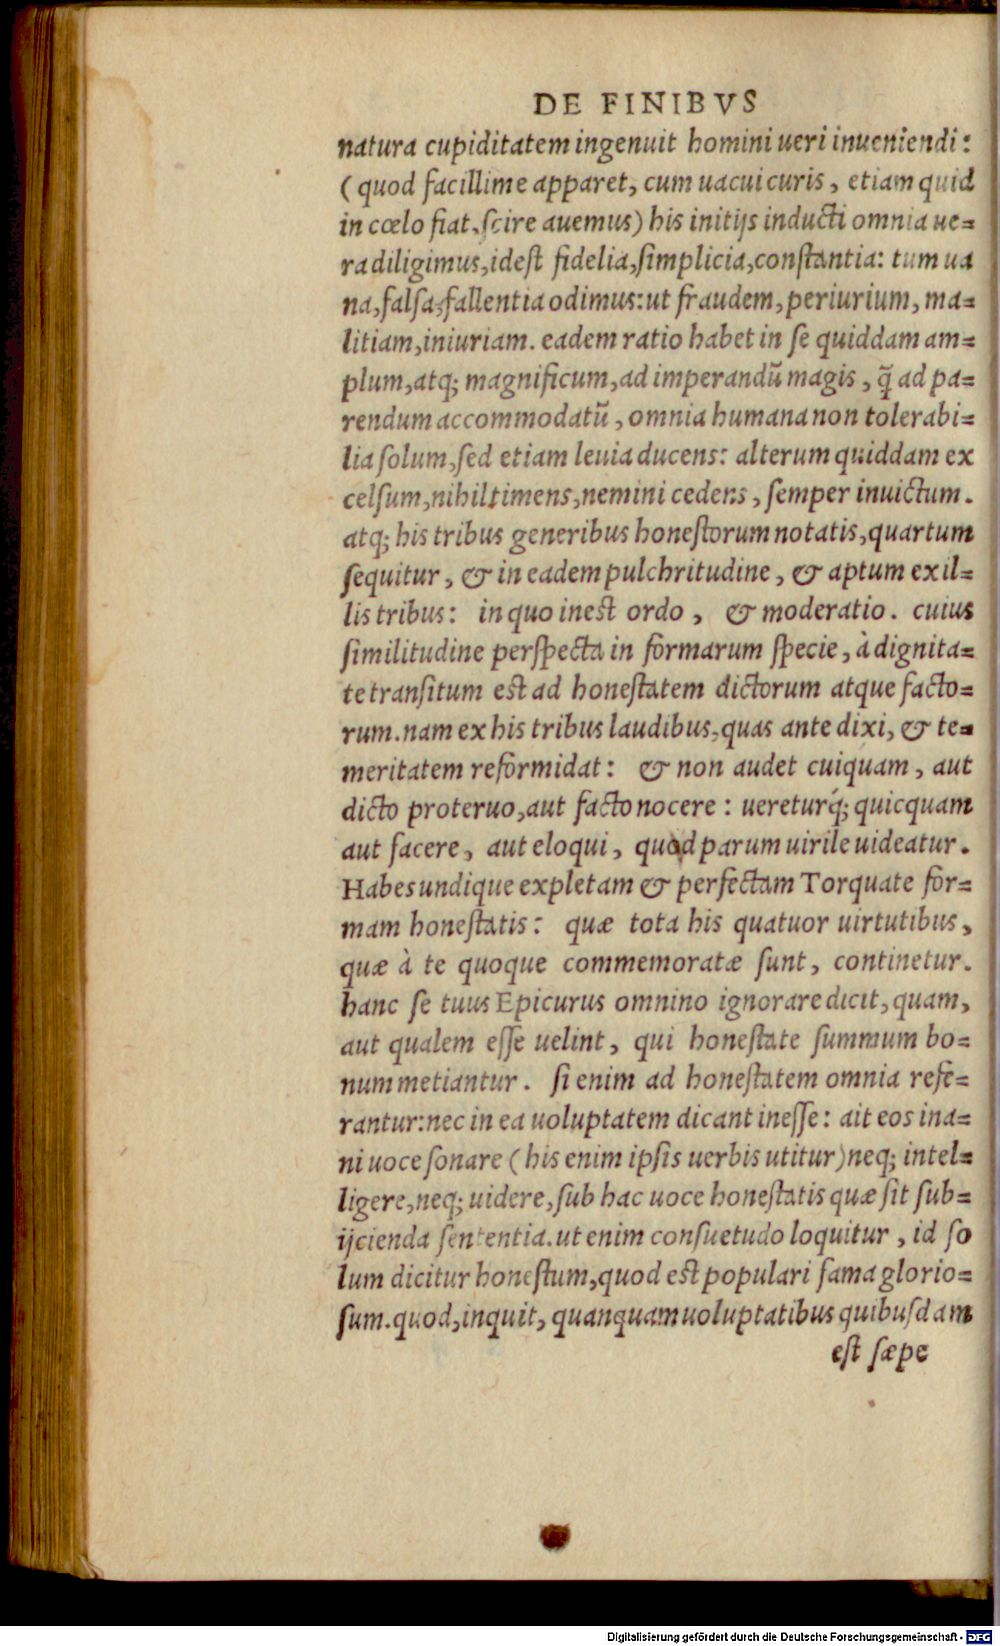 DE FINIBVS
natura cupiditatem ingenuit homini ueri inueniendi:
(quod facillime apparet, cum uacui curis, etiam quid
in cœlo fiat, scire auemus) his initijs inducti omnia ue=
ra diligimus, idest fidelia, simplicia, constantia: tum ua
na, falsa, fallentia odimus: ut fraudem, periurium, ma=
litiam, iniuriam. eadem ratio habet in se quiddam am=
plum, atq; magnificum, ad imperandū magis, q̄ ad pa=
rendum accommodatū, omnia humana non tolerabi=
lia solum, sed etiam leuia ducens: alterum quiddam ex
celsum, nihil timens, nemini cedens, semper inuictum.
atq; his tribus generibus honestorum notatis, quartum
sequitur, & in eadem pulchritudine, & aptum ex il=
lis tribus: in quo inest ordo, & moderatio. cuius
similitudine perspecta in formarum specie, à dignita=
te transitum est ad honestatem dictorum atque facto=
rum. nam ex his tribus laudibus, quas ante dixi, & te=
meritatem reformidat: & non audet cuiquam, aut
dicto proteruo, aut facto nocere: uereturq́; quicquam
aut facere, aut eloqui, quod parum uirile uideatur.
Habes undique expletam & perfectam Torquate for=
mam honestatis: quæ tota his quatuor uirtutibus,
quæ à te quoque commemoratæ sunt, continetur.
hanc se tuus Epicurus omnino ignorare dicit, quam,
aut qualem esse uelint, qui honestate summum bo=
num metiantur. si enim ad honestatem omnia refe=
rantur: nec in ea uoluptatem dicant inesse: ait eos ina=
ni uoce sonare (his enim ipsis uerbis utitur) neq; intel=
ligere, neq; uidere, sub hac uoce honestatis quæ sit sub=
ijcienda sententia. ut enim consuetudo loquitur, id so
lum dicitur honestum, quod est populari fama glorio=
sum. quod, inquit, quanquam uoluptatibus quibusdam
est sæpe
Digitalisierung gefördert durch die Deutsche Forschungsgemeinschaft - DFG